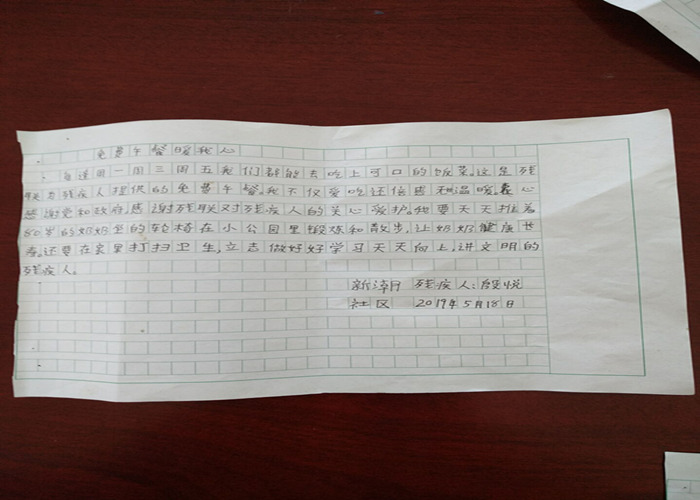 免费午餐暖我心
每逢周一周三周五我们都能去吃上可口的饭菜。这是残
联为残疾人提供的免费午餐。我不仅爱吃还倍感和温暖。衷心
感谢党和政府感谢残联对残疾人的关心爱护。我要天天推着
80岁的奶奶坐的轮椅在小公园里锻炼和散步,让奶奶健康长
寿。还要在家里打扫卫生,立志做好好学习天天向上,讲文明的
残疾人。
残疾人:殷悦
社区 2019年5月18日